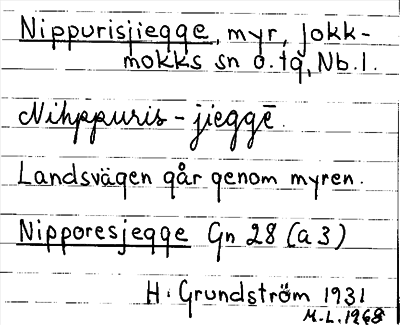 Nippurisjiegge, myr, jokk-
mokks sn o. tg, Nb. l.
Nihppuris-jieggē.
Landsvägen går genom myren.
Nipporesjegge Gn 28 (a 3)
H. Grundström 1931
M.L. 1968